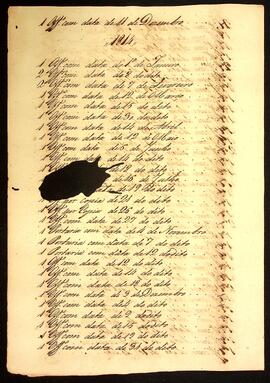 1 Off.º com data de 11 de Dezembro
1814
1 Off.º com data de 1º de Janeiro
2 Off.º com data de 8 de dito
2 Off.º com data de 7 de Fevereiro
1 Off.º com data de 12 de Março
1 Off.º com data de 15 de dito
1 Off.º com data de 30 de dito
1 Off.º com data de 14 de Abril
1 Off.º com data de 12 de Maio
1 Off.º com data de 5 de Junho
de dito
de dito
de Julho
data de 19 de dito
por Copia de 21 de dito
1 Off.º por Copia de 26 de dito
1 Off.º com data de 27 de dito
1 Portaria com data de 4 de Novembro
1 Portaria com data de 7 de dito
1 Portaria com data de 12 de dito
1 Off.º com data de 12 de dito
1 Off.º com data de 14 de dito
1 Off.º com data de 18 de dito
1 Off.º com data de 3 de Dezembro
1 Off.º com data de 4 de dito
1 Off.º com data de 9 de dito
1 Off.º com data de 15 de dito
1 Off.º com data de 19 de dito
1 Off.º com data de 31 de dito